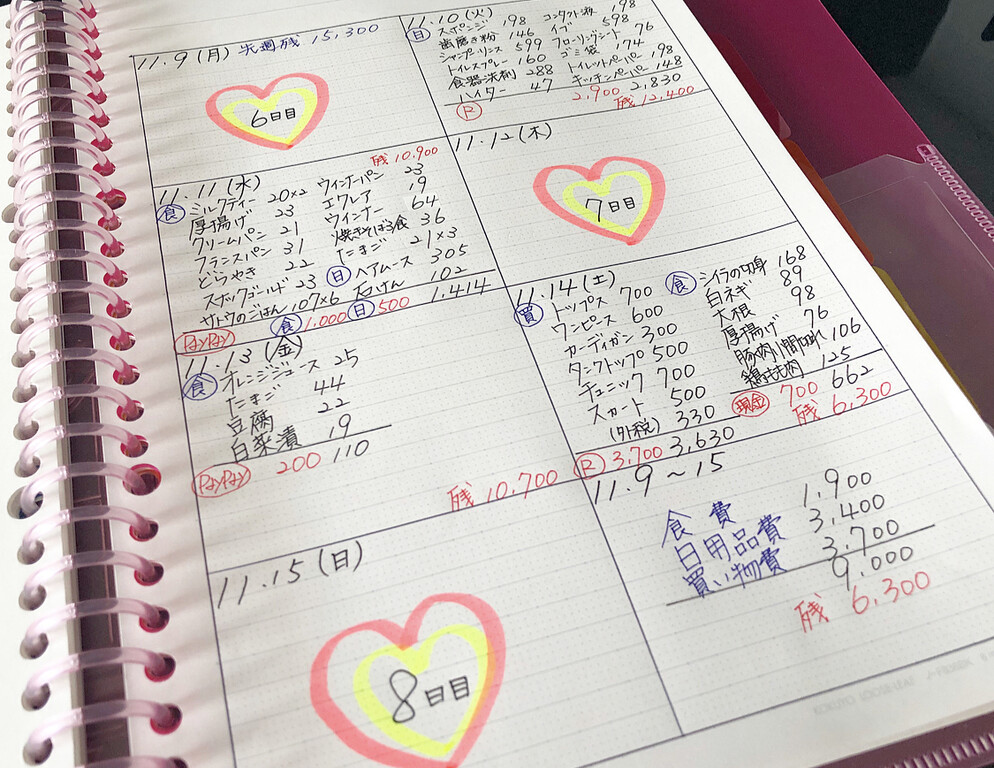 11.9 (月) 先週残 15,300
6日目
11.10 (火)
日 スポンジ 198 コンタクト液 198
歯磨き粉 146 イブ 598
シャンプリンス 599 フローリングシート 76
トイレスプレー 160 ゴミ袋 174
食器洗剤 288 トイレットペーパー 198
ハイター 47 キッチンペーパー 148
R 2,900 2,830
残 12,400
残 10,900
11.11 (水)
食 ミルクティー 20×2 ウインナーパン 23
厚揚げ 23 エクレア 19
クリームパン 21 ウインナー 64
フランスパン 31 焼きそば3食 36
どらやき 22 たまご 21×3
スナックゴールド 23 日 ヘアムース 305
サトウのごはん 107×6 石けん 102
PayPay 食 1,000 日 500 1,414
11.12 (木)
7日目
11.13 (金)
食 オレンジジュース 25
たまご 44
豆腐 22
白菜漬 19
PayPay 200 110
残 10,700
11.14 (土)
買 トップス 700
ワンピース 600
カーディガン 300
タンクトップ 500
チュニック 700
スカート 500
(外税) 330
R 3,700 3,630
食 シイラの切身 168
白ネギ 89
大根 98
厚揚げ 76
豚肉小間切れ 106
鶏もも肉 125
現金 700 662
残 6,300
11.15 (日)
8日目
11.9～15
食費 1,900
日用品費 3,400
買い物費 3,700
9,000
残 6,300